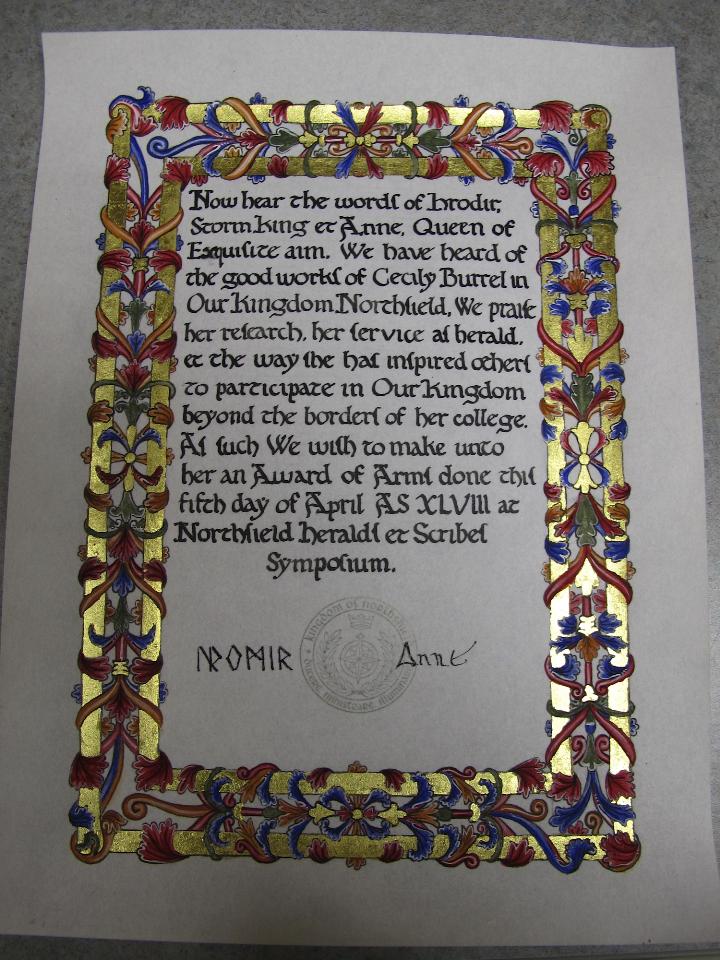 Now hear the words of Hrodir,
Stormking et Anne, Queen of
Exquisite aim. We have heard of
the good works of Cecily Burrel in
Our Kingdom Northsield, We praise
her research, her service as herald,
et the way she has inspired others
to participate in Our Kingdom
beyond the borders of her college.
As such We wish to make unto
her an Award of Arms done this
fifth day of April AS XLVIII at
Northsield Heralds et Scribes
Symposium.
Anne
kingdom of